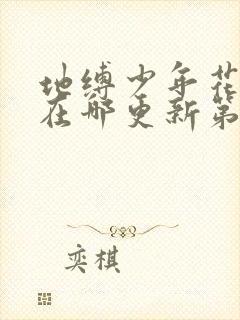 地缚少年花
在哪更新第
奕棋